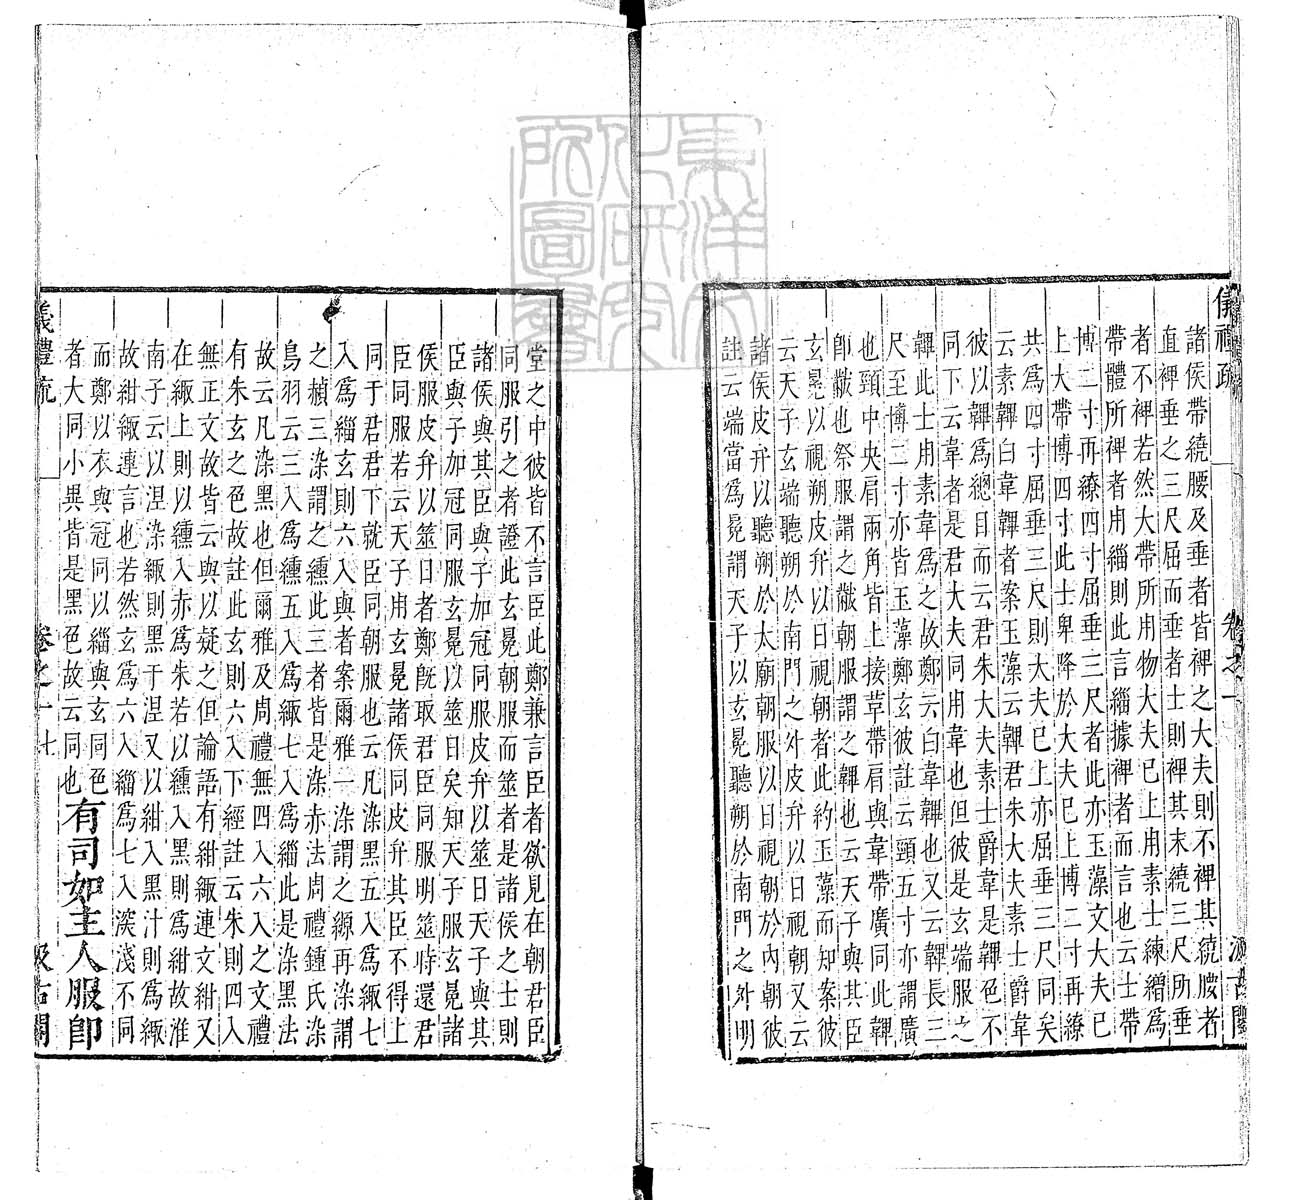 儀禮疏 卷之一 汲古閣
諸侯帶繞腰及垂者皆裨之大夫則不裨其繞腰者
直裨垂之三尺屈而垂者士則裨其末繞三尺所垂
者不裨若然大帶所用物大夫已上用素士練繒爲
帶體所裨者用緇則此言緇據裨者而言也云士帶
博二寸再繚四寸屈垂三尺者此亦玉藻文大夫已
上大帶博四寸此士卑降於大夫已上博二寸再繚
共爲四寸屈垂三尺則大夫已上亦屈垂三尺同矣
云素韠白韋韠者案玉藻云韠君朱大夫素士爵韋
彼以韠爲總目而云君朱大夫素士爵韋是韠色不
同下云韋者是君大夫同用韋也但彼是玄端服之
韠此士用素韋爲之故鄭云白韋韠也又云韠長三
尺至博二寸亦皆玉藻鄭玄彼註云頸五寸亦謂廣
也頸中央肩兩角皆上接革帶肩與韋帶廣同此韠
卽黻也祭服謂之黻朝服謂之韠也云天子與其臣
玄冕以視朔皮弁以日視朝者此約玉藻而知案彼
云天子玄端聽朔於南門之外皮弁以日視朝又云
諸侯皮弁以聽朔於太廟朝服以日視朝於內朝彼
註云端當爲冕謂天子以玄冕聽朔於南門之外明
堂之中彼皆不言臣此鄭兼言臣者欲見在朝君臣
同服引之者證此玄冕朝服而筮者是諸侯之士則
諸侯與其臣與子加冠同服皮弁以筮日天子與其
臣與子加冠同服玄冕以筮日矣知天子服玄冕諸
侯服皮弁以筮日者鄭既取君臣同服明筮時還君
臣同服若云天子用玄冕諸侯同皮弁其臣不得上
同于君君下就臣同朝服也云凡染黑五入爲緅七
入爲緇玄則六入與者案爾雅一染謂之縓再染謂
之赬三染謂之纁此三者皆是染赤法周禮鍾氏染
鳥羽云三入爲纁五入爲緅七入爲緇此是染黑法
故云凡染黑也但爾雅及周禮無四入六入之文禮
有朱玄之色故註此玄則六入下經註云朱則四入
無正文故皆云與以疑之但論語有紺緅連文紺又
在緅上則以纁入赤爲朱若以纁入黑則爲紺故淮
南子云以涅染緅則黑于涅又以紺入黑汁則爲緅
故紺緅連言也若然玄爲六入緇爲七入深淺不同
而鄭以衣與冠同以緇與玄同色
者大同小異皆是黑色故云同也 有司如主人服卽
儀禮疏 卷之一 七 汲古閣
東洋文化研究所圖書